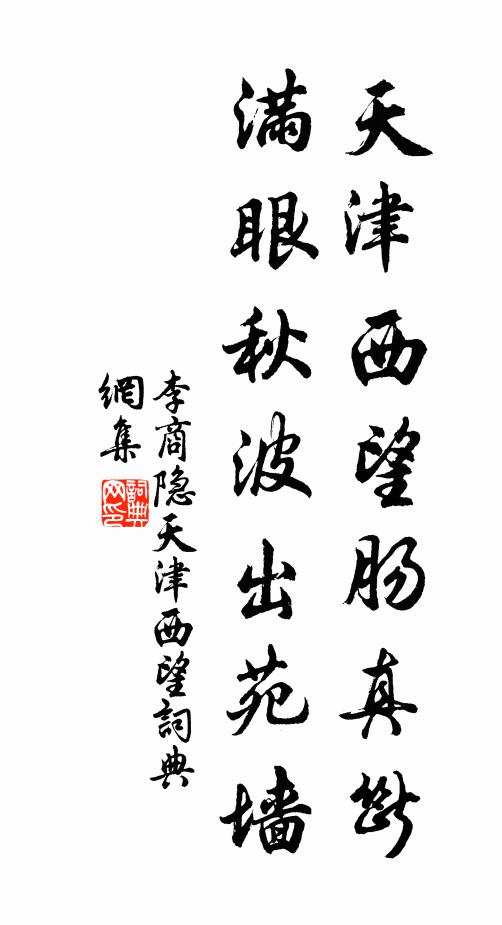 天津西望肠真斷
满眼秋波出苑墙
李商隐天津西望詞典
網集
詞典网印